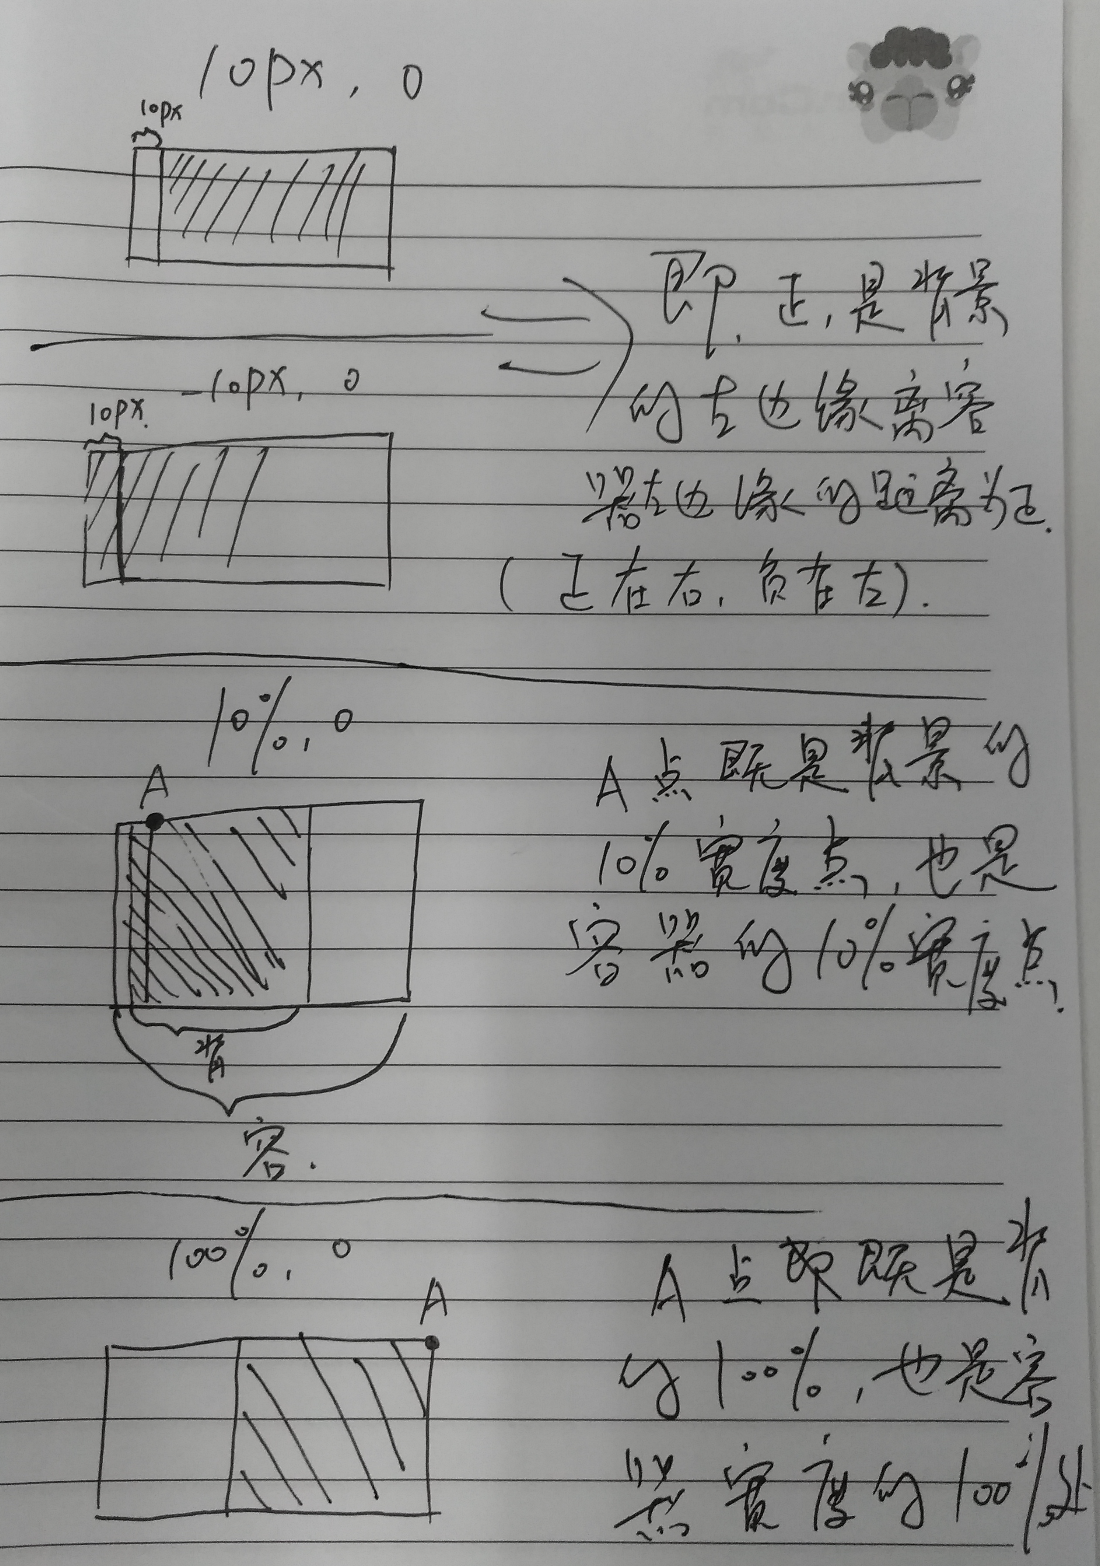 10px, 0
10px
即, 正, 是背景
的左边缘离容
器左边缘的距离为正.
(正在右, 负在左).
-10px, 0
10px.
10%, 0
A
背
容.
A点既是背景的
10%宽度点, 也是
容器的10%宽度点.
100%, 0
A
A点即既是背
的100%, 也是容
器宽度的100%处